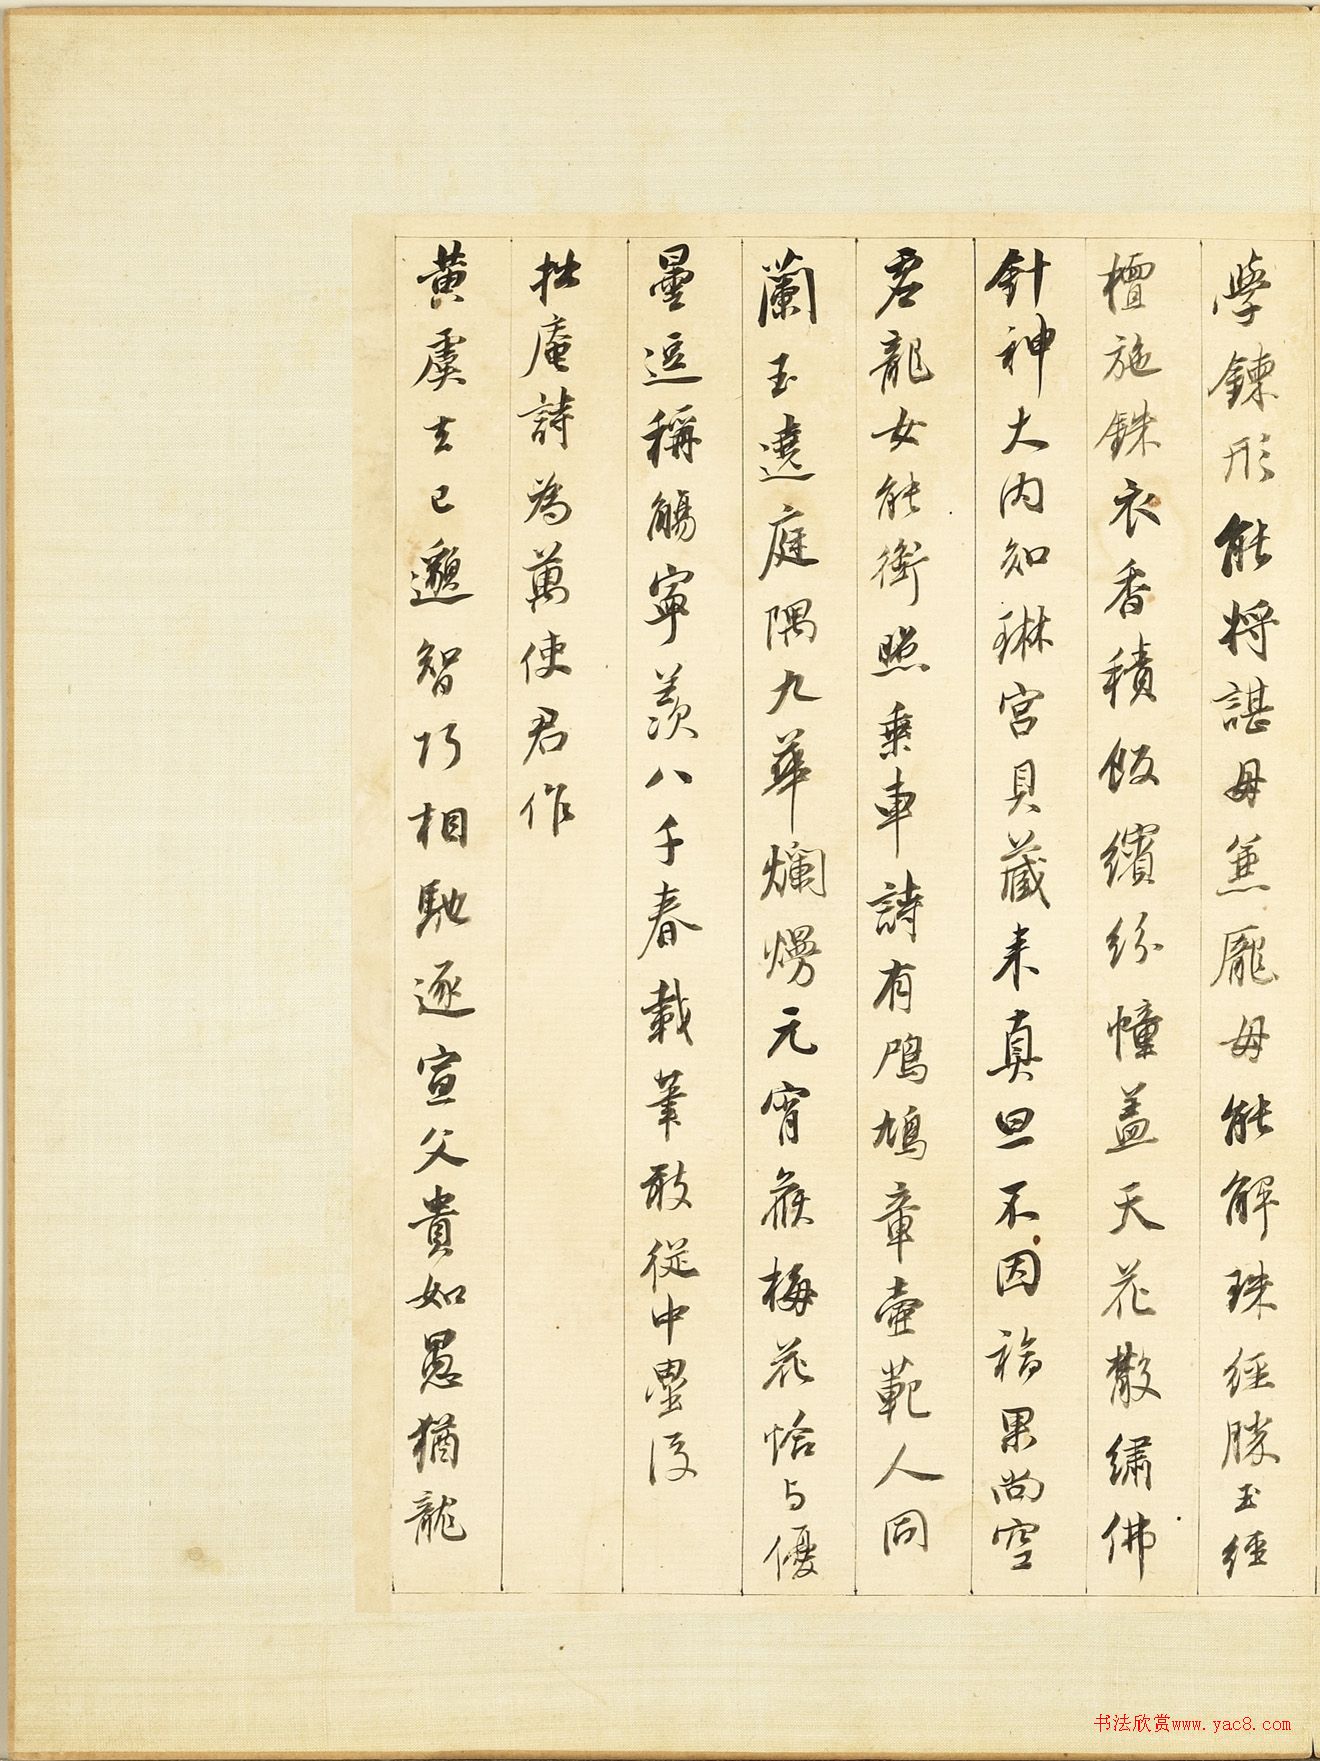 學鍊形能將諶母兼龐母能解珠經勝玉經
檀施銖衣香積飯繽紛幢蓋天花散繡佛
針神大内知琳宮貝藏来真旦不因福果尚空
君龍女能銜照乘車詩有鳲鳩章壼範人同
蘭玉遶庭隅九華爛熳元宵後梅花恰与優
曇逗稱觴寧羨八千春載筆敢從中壘後
拙庵詩為萬使君作
黃虞去已邈智巧相馳逐宣父貴如愚猶龍
书法欣赏www.yac8.com